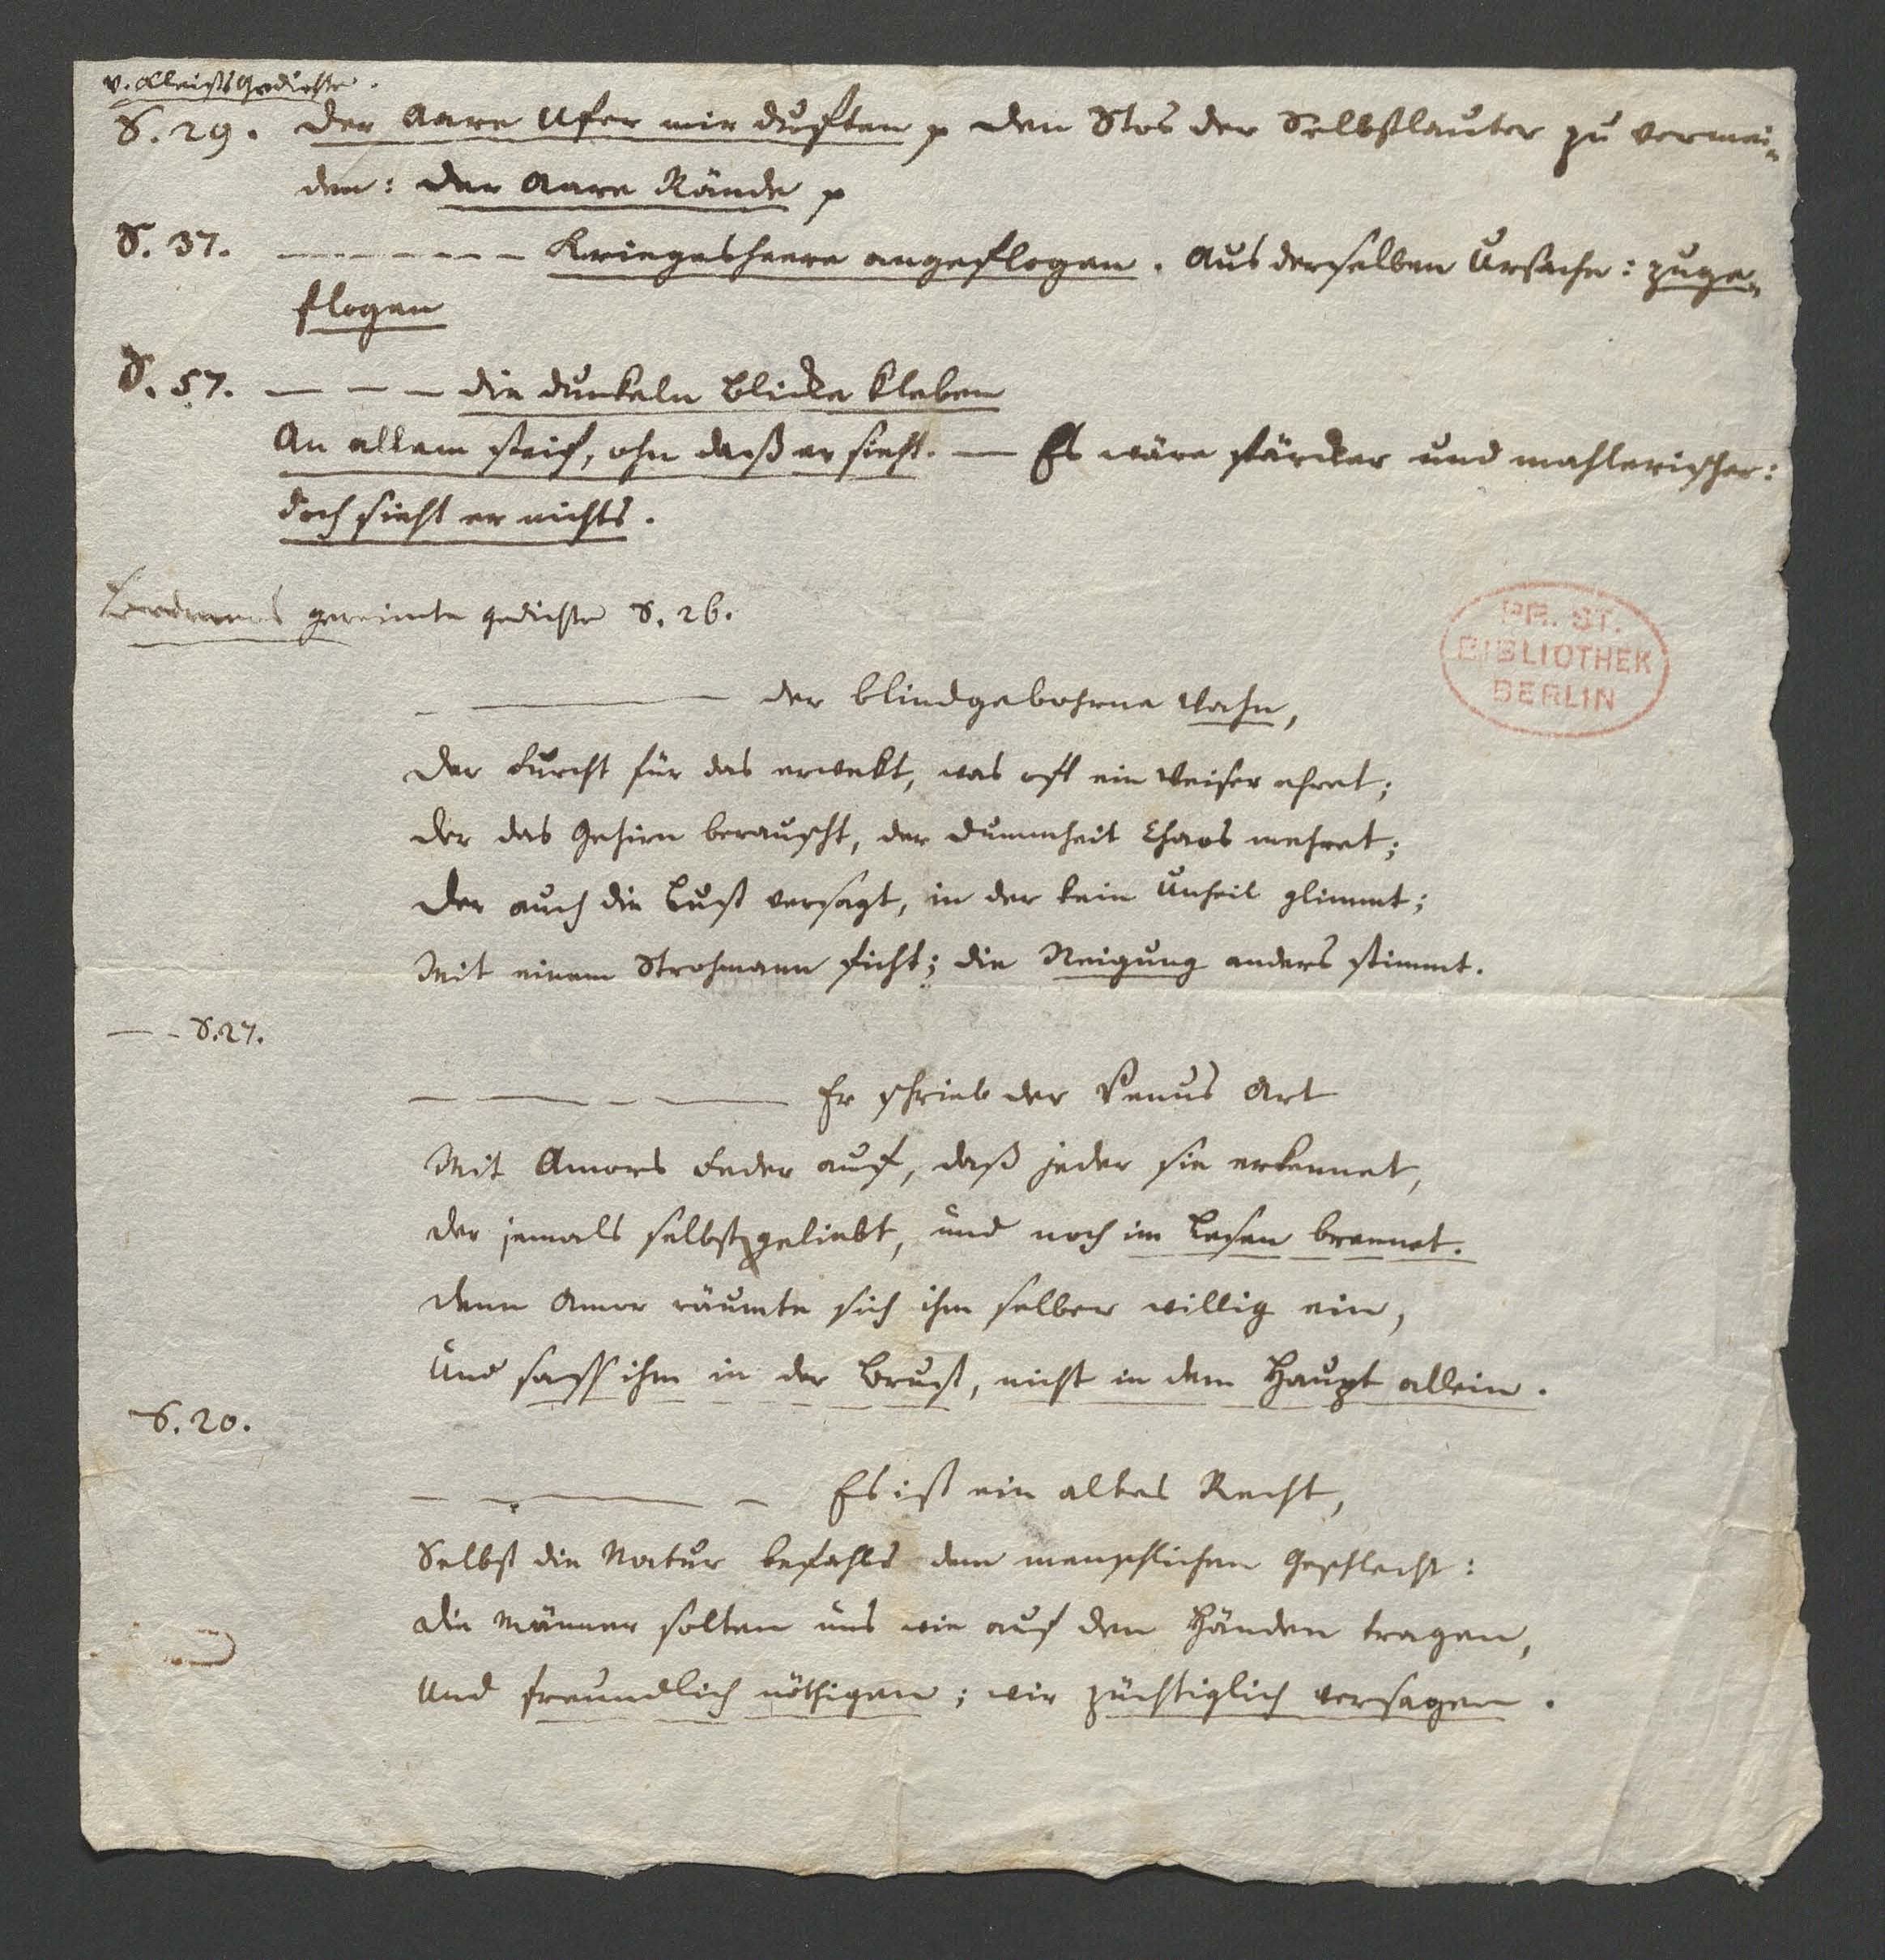 v. Kleists Gedichte.
S. 29. Der Aare Ufer mir duften p den Stos der Selbstlauter zu vermei-
den: Der Aare Rände p
S. 37. — — — — — — Kriegesheere angeflogen. Aus derselben Ursache: zuge-
flogen
S. 57. — — — die dunkeln Blicke kleben
An allem steif, ohn daß er sieht. — Es wäre stärcker und mahlerischer:
doch sieht er nichts.
Bodmers gereimte Gedichte S. 26.
PR. ST.
BIBLIOTHEK
BERLIN
— — der blindgebohrne Wahn,
Der Furcht für das erwekt, was oft ein Weiser ehret;
Der das Gehirn berauscht, der Dummheit Chaos mehret;
Der auch die Lust versagt, in der kein Unheil glimmt;
Mit einem Strohmann ficht; die Neigung anders stimmt.
— — S. 27.
— — — — Er schrieb der Venus Art
Mit Amors Feder auf, daß jeder sie erkennet,
Der jemals selbst geliebt, und noch im Lesen brennet.
Denn Amor räumte sich ihm selber willig ein,
Und saß ihm in der Brust, nicht in dem Haupt allein.
S. 20.
— — — Es ist ein altes Recht,
Selbst die Natur befahls dem menschlichen Geschlecht:
Die Männer solten uns wie auf den Händen tragen,
Und freundlich nöthigen; wir züchtiglich versagen.